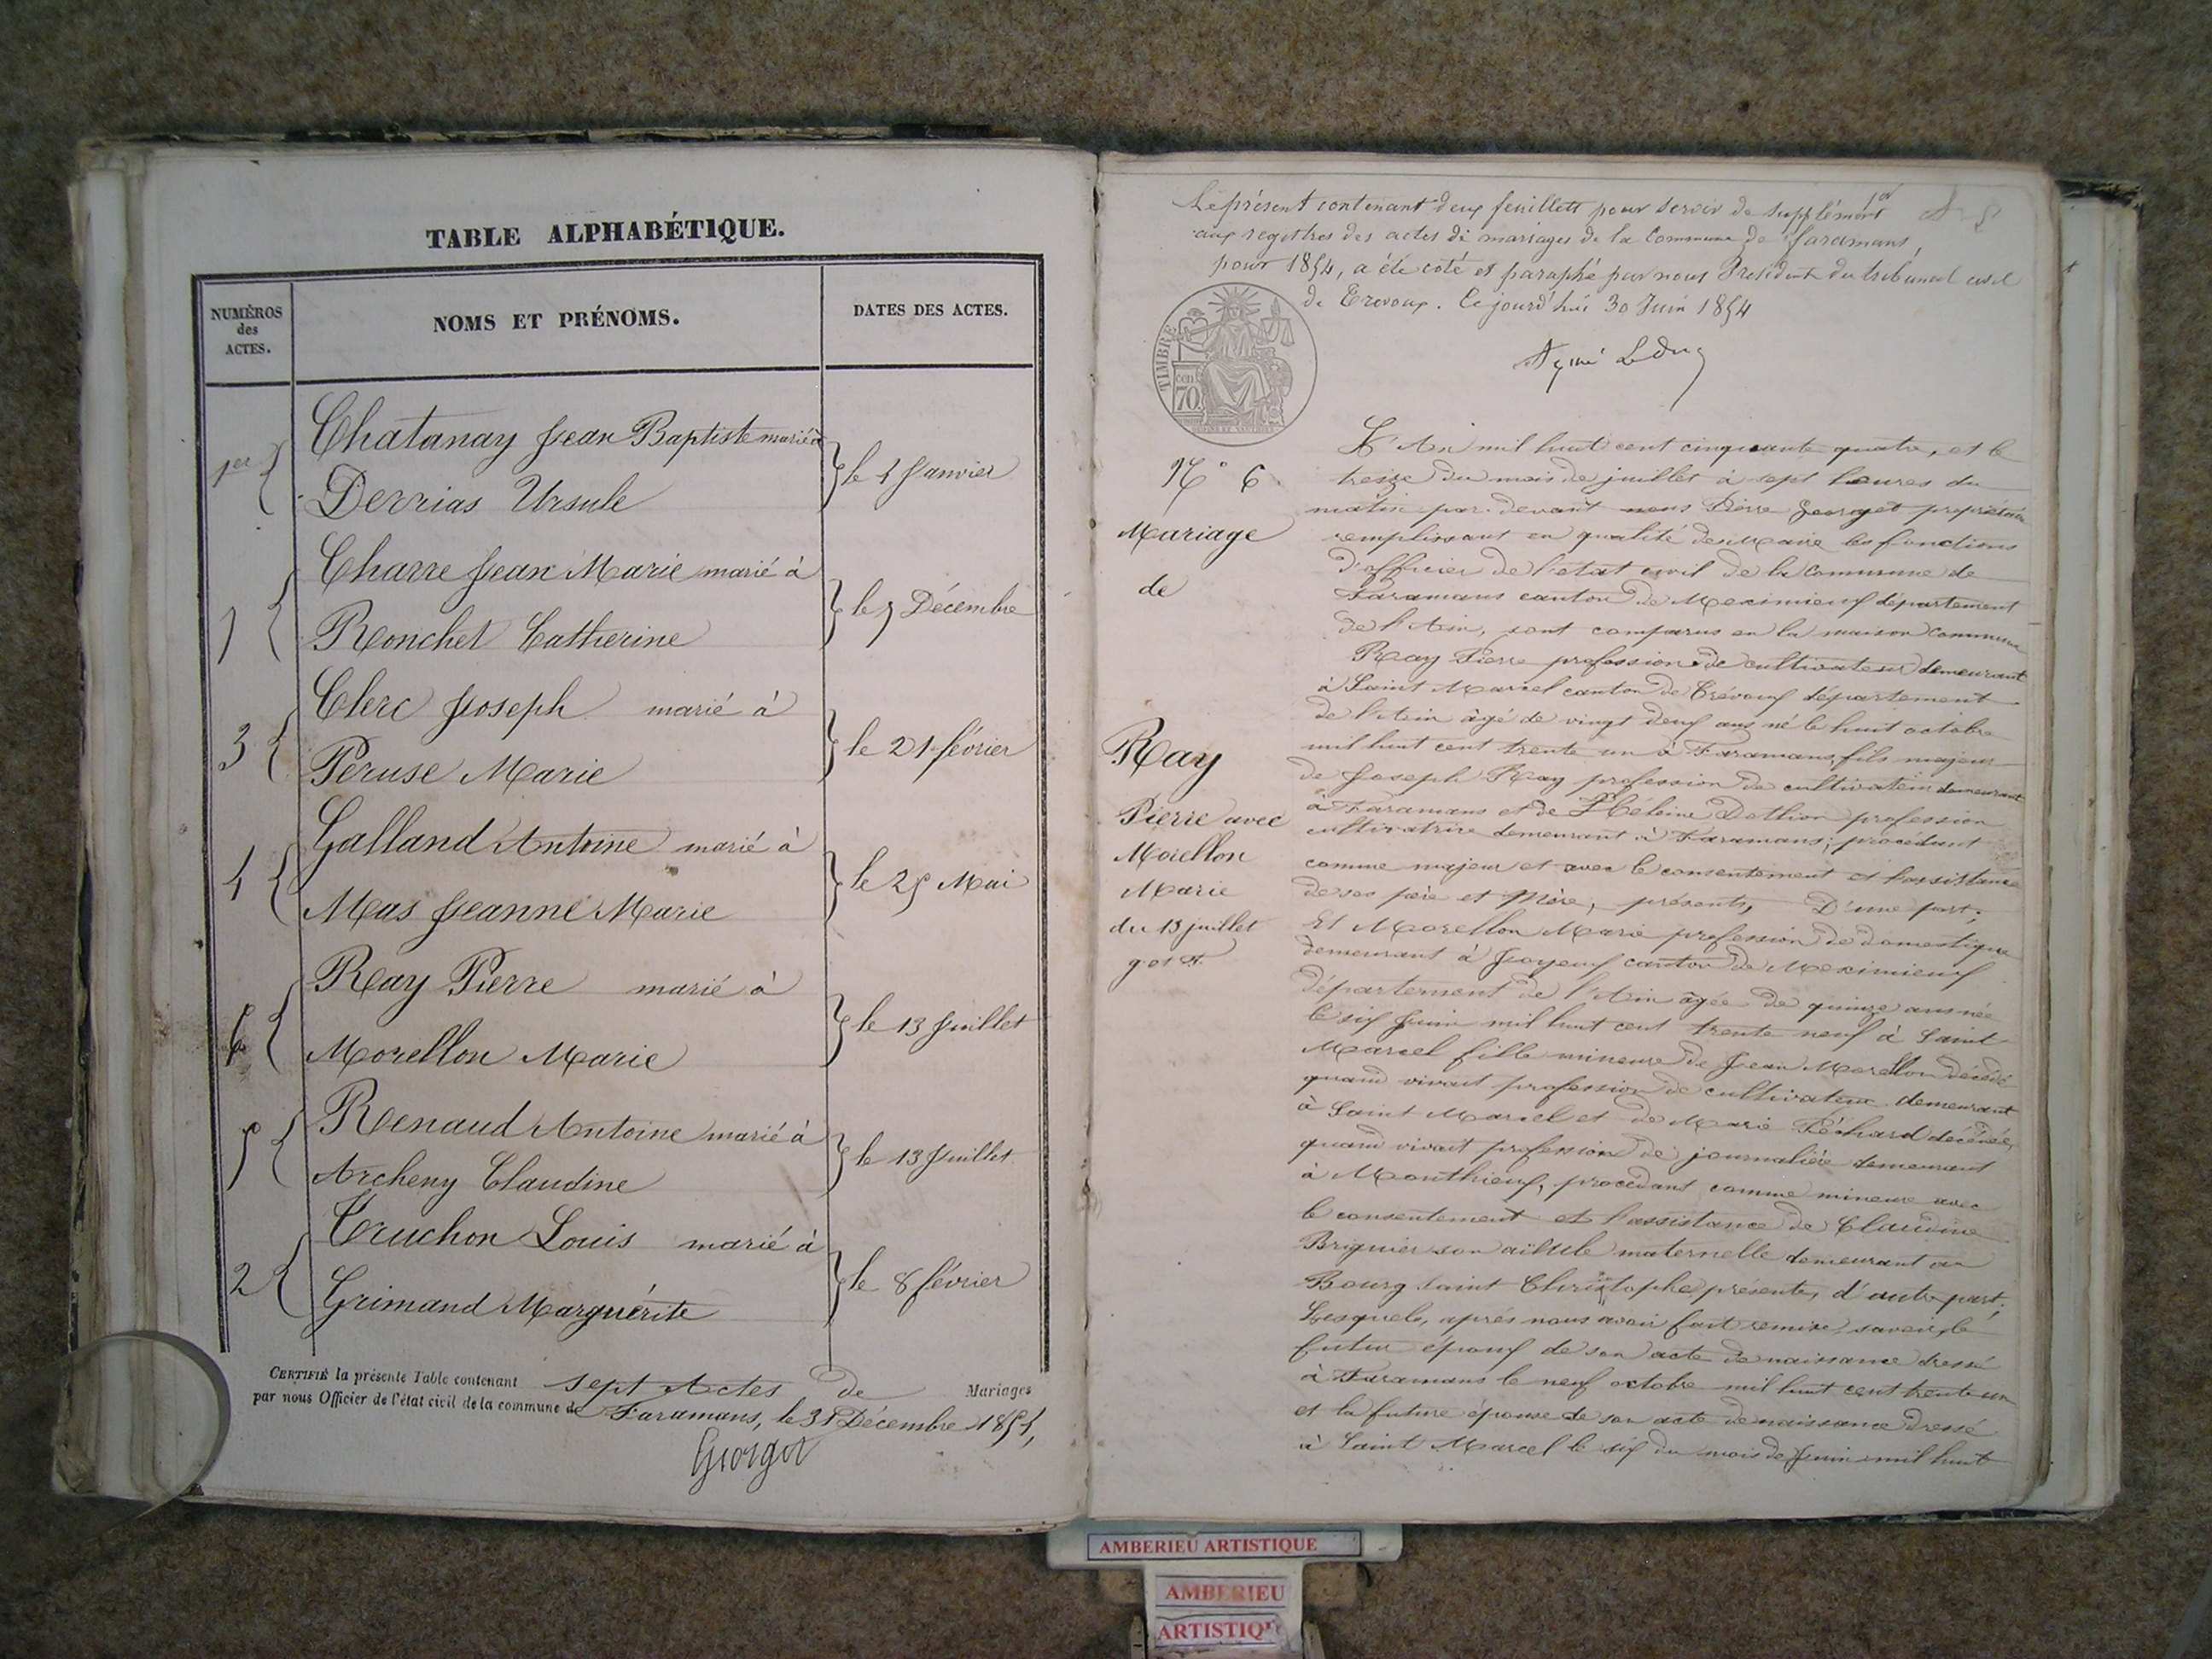 TABLE ALPHABÉTIQUE.
NUMÉROS des ACTES.
NOMS ET PRÉNOMS.
DATES DES ACTES.
1er
Chatanay Jean Baptiste marié à
Derrias Ursule
le 4 Janvier
7
Charre Jean Marie marié à
Ronchet Catherine
le 7 Décembre
3
Clerc Joseph marié à
Peruse Marie
le 21 février
4
Galland Antoine marié à
Mas Jeanne Marie
le 25 Mai
6
Ray Pierre marié à
Morellon Marie
le 13 Juillet
5
Renaud Antoine marié à
Archeny Claudine
le 13 Juillet
2
Truchon Louis marié à
Grimand Marguérite
le 8 février
CERTIFIÉ la présente Table contenant sept Actes de Mariages
par nous Officier de l'état civil de la commune de Faramans, le 31 Décembre 1854,
Georget
Le présent contenant deux feuillets pour servir de supplément
aux registres des actes de mariages de la Commune de faramans,
pour 1854, a été coté et paraphé par nous Président du tribunal civil
de Trevoux. Ce jourd'hui 30 Juin 1854
TIMBRE
cen 70
N° 6
Mariage
de
Ray
Pierre avec
Morellon
Marie
du 13 juillet
L'An mil huit cent cinquante quatre, et le
treize du mois de juillet à sept heures du
matin par devant nous Pierre Georget propriétaire
remplissant en qualité de Maire les fonctions
d'officier de l'état civil de la Commune de
Faramans canton de Meximieux département
de l'Ain, sont comparus en la maison commune
Ray Pierre profession de cultivateur demeurant
à Saint Marcel canton de Trévoux département
de l'Ain âgé de vingt deux ans né le huit octobre
mil huit cent trente un à Faramans, fils majeur
de Joseph Ray profession de cultivateur demeurant
à Faramans et de Héleine Dethion profession
cultivatrice demeurant à Faramans; procédant
comme majeur et avec le consentement et l'assistance
de ses père et Mère, présents, D'une part;
Et Morellon Marie profession de domestique
demeurant à Joyeux canton de Meximieux
département de l'Ain âgée de quinze ans née
le six Juin mil huit cent trente neuf à Saint
Marcel fille mineure de Jean Morellon décédé
quand vivait profession de cultivateur demeurant
à Saint Marcel et de Marie Péchard décédée,
quand vivait profession de journalière demeurant
à Monthieux, procédant comme mineure avec
le consentement et l'assistance de Claudine
Briguier son aïeule maternelle demeurant au
Bourg Saint Christophe présente, d'autre part;
Lesquels, après nous avoir fait remise, savoir, le
futur époux de son acte de naissance dressé
à Faramans le neuf octobre mil huit cent trente un
et la future épouse de son acte de naissance dressé
à Saint Marcel le six du mois de Juin mil huit
AMBERIEU ARTISTIQUE
AMBERIEU
ARTISTIQU